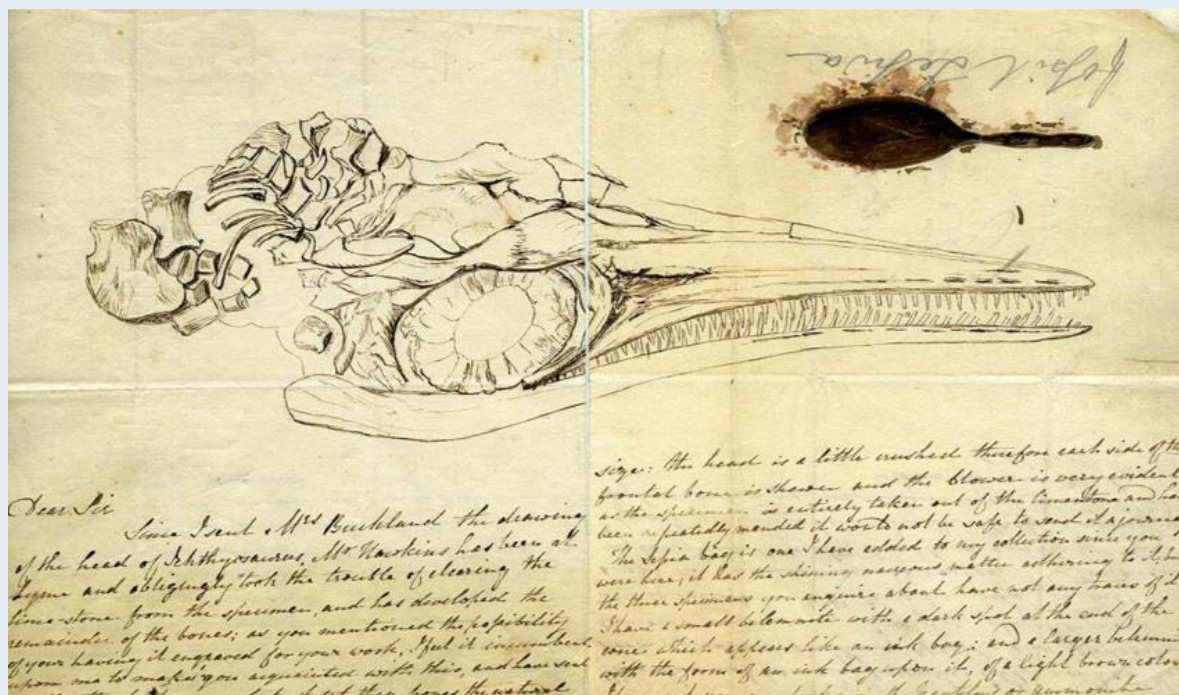 fossil Sepia
Dear Sir
Since I sent Mrs Buckland the drawing
of the head of Ichthyosaurus, Mr Hawkins has been at
Lyme and obligingly took the trouble of clearing the
lime-stone from the specimen, and has developed the
remainder of the bones; as you mentioned the possibility
of your having it engraved for your work, I feel it incumbent
upon me to make you acquainted with this, and have sent
bones the natural
size: the head is a little crushed therefore each side of the
frontal bone is shewn and the blower is very evident
as the specimen is entirely taken out of the limestone and has
been repeatedly mended it would not be safe to send it a journey
The Sepia bag is one I have added to my collection since you
were here, it has the shining nacreous matter adhering to it, but
the three specimens you enquire about have not any traces of it
I have a small belemnite with a dark spot at the end of the
cone which appears like an ink bag; and a larger belemnite
with the form of an ink bag upon it, of a light brown colour